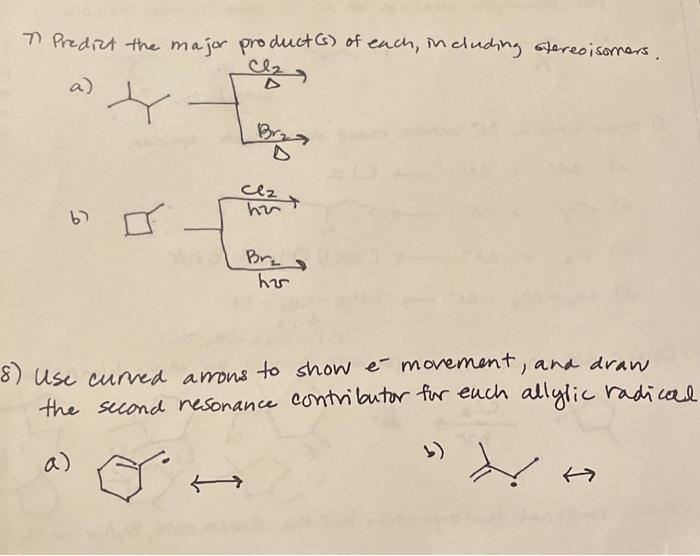 7) Predict the major product(s) of each, including stereoisomers.
a)
Cl2
Δ
Br2
Δ
b)
Cl2
hν
Br2
hν
8) Use curved arrows to show e- movement, and draw
the second resonance contributor for each allylic radical
a)
b)